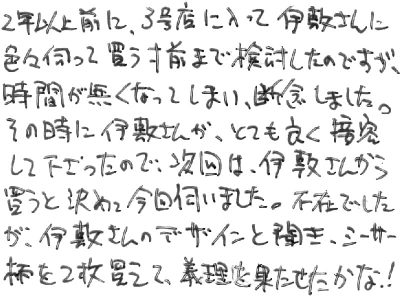 2年以上前に、3号店に入って伊敷さんに
色々伺って買う寸前まで検討したのですが、
時間が無くなってしまい、断念しました。
その時に伊敷さんが、とても良く接客
して下さったので、次回は、伊敷さんから
買うと決めて今回伺いました。不在でした
が、伊敷さんのデザインと聞き、シーサー
柄を2枚買えて、義理を果たせたかな！